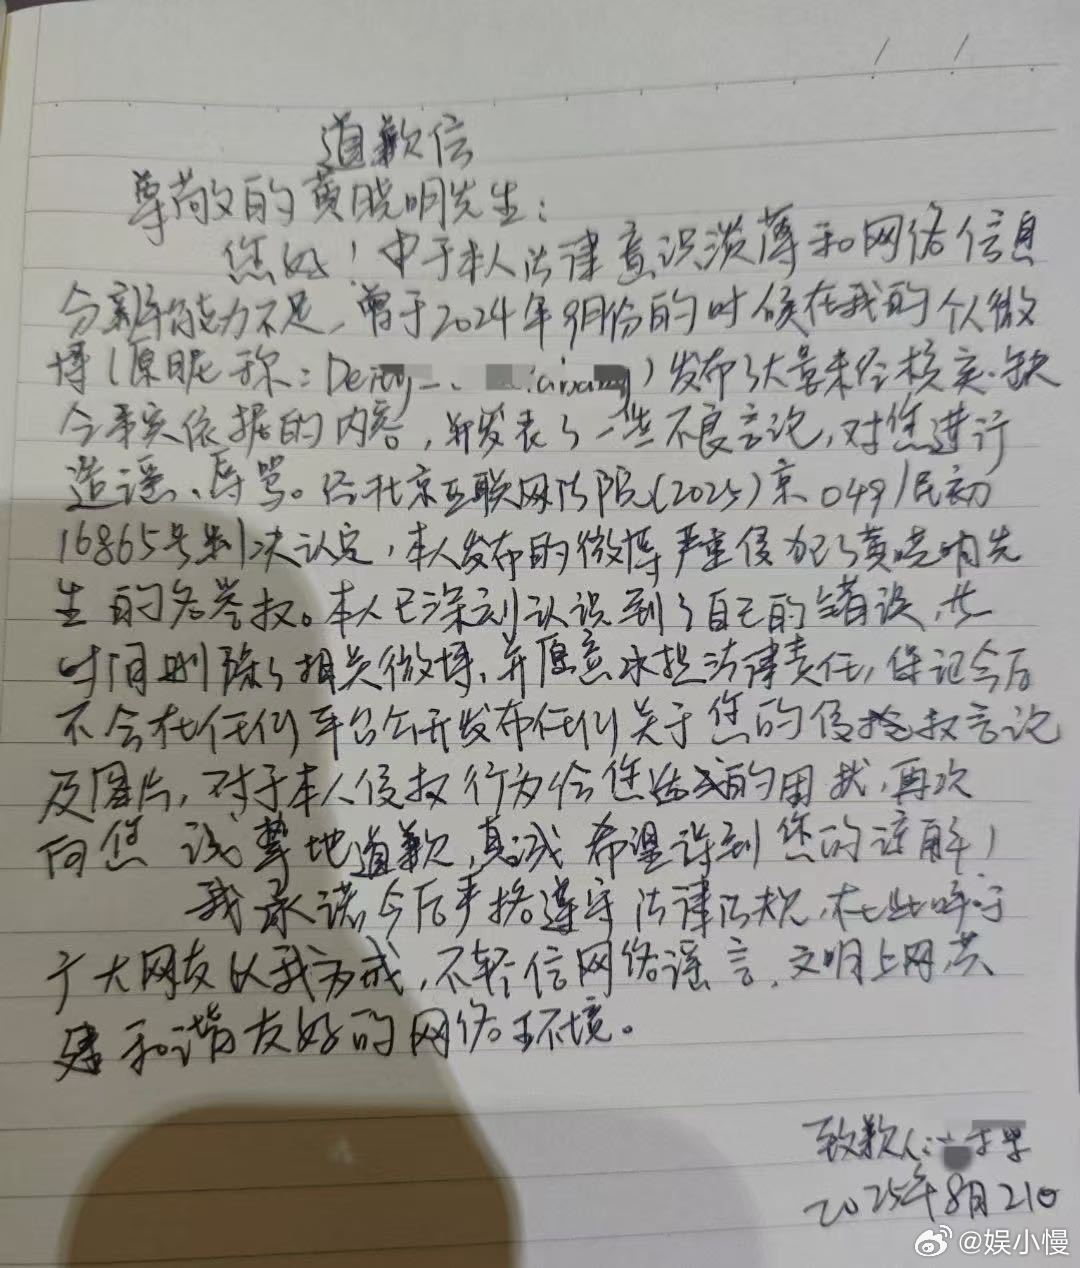 道歉信
尊敬的黄晓明先生：
您好！由于本人法律意识淡薄和网络信息
分辨能力不足，曾于2024年9月份的时候在我的个人微
博（原昵称：Deity_）发布了大量未经核实、缺
令事实依据的内容，并发表了一些不良言论，对您进行
造谣、辱骂。经北京互联网法院（2025）京0491民初
16865号判决认定，本人发布的微博严重侵犯了黄晓明先
生的名誉权。本人已深刻认识到了自己的错误，
时间删除了相关微博，并愿意承担法律责任，保证今后
不会在任何平台公开发布任何关于您的侵权言论
及图片，对于本人侵权行为给您造成的困扰，再次
向您诚挚地道歉，真诚希望得到您的谅解！
我承诺今后严格遵守法律法规，在此呼吁
广大网友以我为戒，不轻信网络谣言，文明上网共
建和谐友好的网络环境。
致歉人：
2025年8月21日
@娱小慢